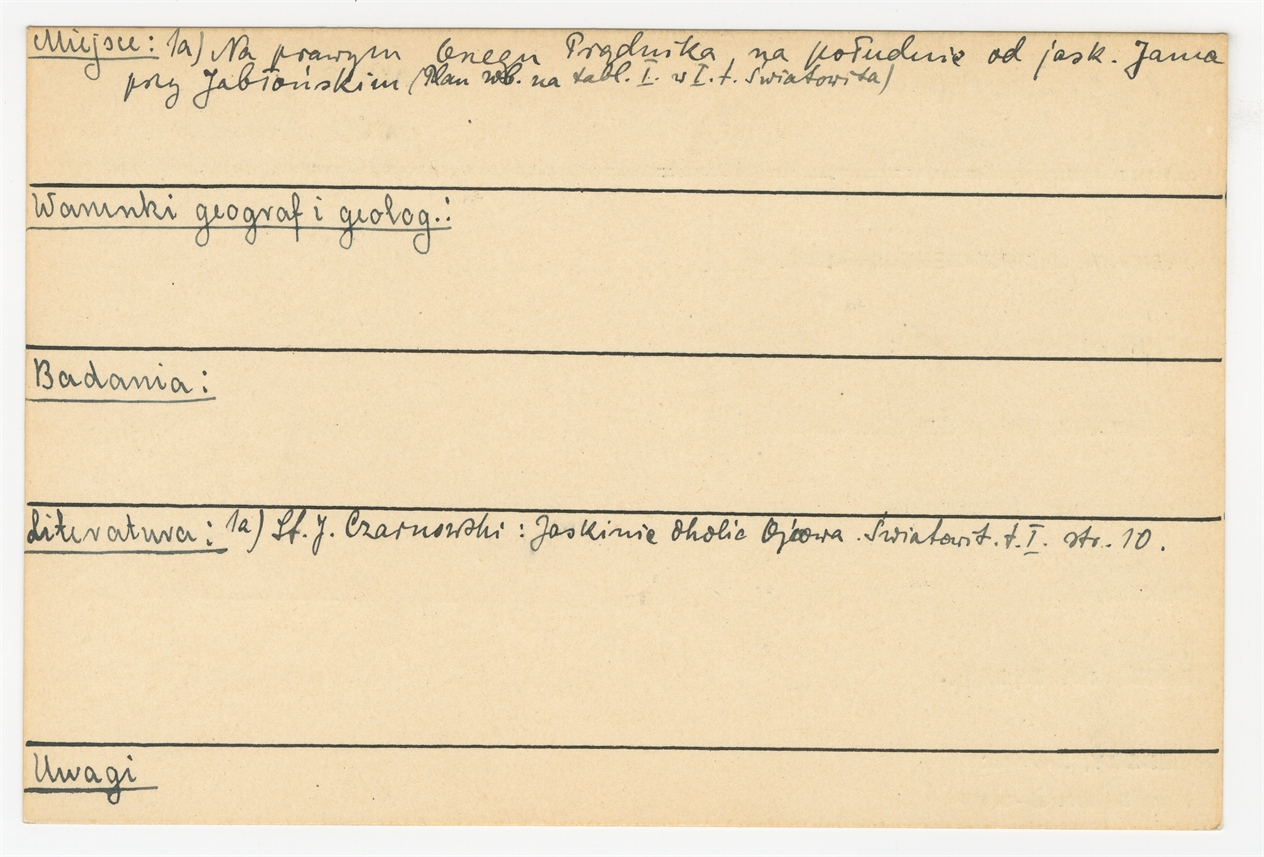 Miejsce: 1a) Na prawym brzegu Prądnika na południe od jask. Jama
przy Jabłońskim (Plan wb. na tabl. I. w I. t. Światowita)
Warunki geograf i geolog.:
Badania:
Literatura: 1a) St. J. Czarnowski: Jaskinie okolic Ojcowa. Światowit. t. I. str. 10.
Uwagi